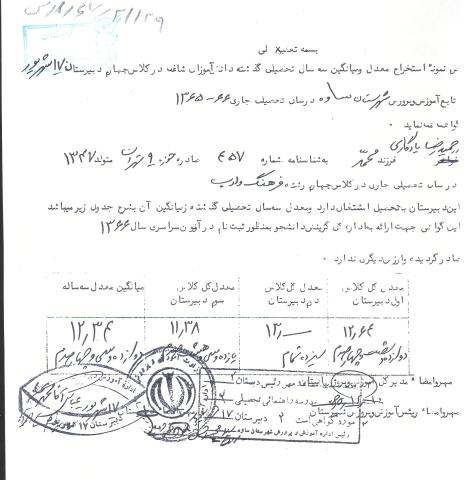 بسمه تعالی
نمونه استخراج معدل و میانگین سه سال تحصیلی گذشته دانش آموزان شاغل در کلاس چهارم دبیرستان ۱۷ شهریور
تابع آموزش و پرورش شهرستان ساوه در سال تحصیلی جاری ۶۶-۱۳۶۵
گواهی می نماید .
حمیدرضا یادگاری
فرزند محمد به شناسنامه شماره ۴۵۷ صادره حوزه ۹ تهران متولد ۱۳۴۷
در سال تحصیلی جاری در کلاس چهارم رشته فرهنگ و ادب
این دبیرستان به تحصیل اشتغال دارد و معدل سه سال تحصیلی گذشته و میانگین آن بشرح جدول زیر میباشد
این گواهی جهت ارائه به اداره کل گزینش دانشجو بمنظور ثبت نام در آزمون سراسری سال ۱۳۶۶
صادر گردیده و ارزش دیگری ندارد .
معدل کل کلاس اول دبیرستان معدل کل کلاس دوم دبیرستان معدل کل کلاس سوم دبیرستان میانگین معدل سه ساله
۱۲/۶۴ ۱۳/۰۰ ۱۱/۳۸ ۱۲/۳۴
سیزده تمام
مهر و امضاء مهر رئیس دبستان
مدرسه راهنمائی تحصیلی
مهر و امضاء رئیس آموزش و پرورش شهرستان
مورد گواهی است دبیرستان ۱۷
رئیس اداره آموزش و پرورش شهرستان ساوه